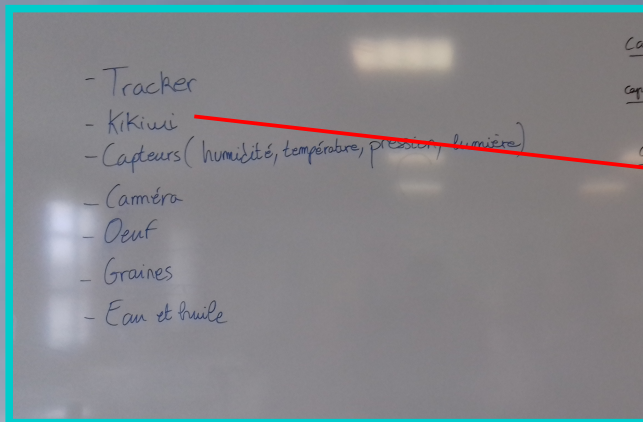 - Tracker
- Kikiwi
- Capteurs (humidité, température, pression, lumière)
- Caméra
- Oeuf
- Graines
- Eau et huile
Ca
cap